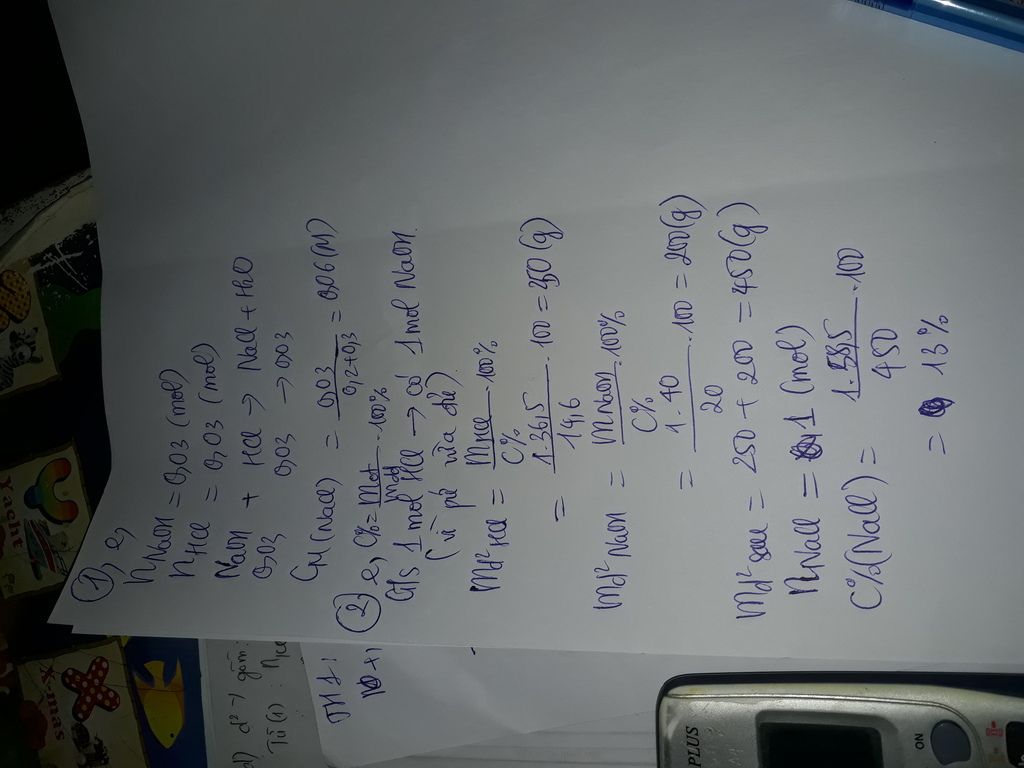 ①, e,
nNaOH = 0,03 (mol)
nHCl = 0,03 (mol)
NaOH + HCl → NaCl + H2O
0,03 0,03 → 0,03
CM (NaCl) = 0,03 / 0,2+0,3 = 0,06 (M)
② e, C% = mct / mdd . 100%
G/s 1 mol HCl → có 1 mol NaOH.
(vì pứ vừa đủ).
md² HCl = mHCl / C% . 100%
= 1.36,5 / 14,6 . 100 = 250 (g)
md² NaOH = mNaOH / C% . 100%
= 1.40 / 20 . 100 = 200 (g)
md² sau = 250 + 200 = 450 (g)
nNaCl = 1 (mol)
C% (NaCl) = 1.58,5 / 450 . 100
= 13%
TH1:
d) d² Y gồm
Từ (1) : nHCl
X-mas
Yacht
PLUS
ON